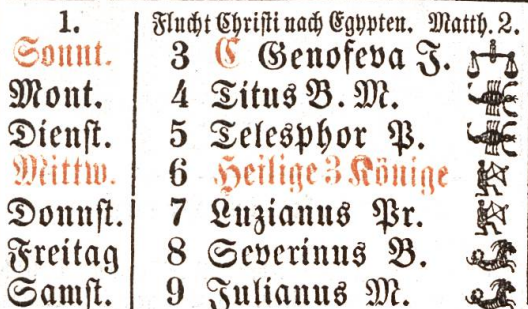 1. Flucht Christi nach Egypten. Matth. 2.
Sonnt. 3 C Genofeva J.
Mont. 4 Titus B. M.
Dienst. 5 Telesphor P.
Mittw. 6 Heilige 3 Könige
Donnst. 7 Luzianus Pr.
Freitag 8 Severinus B.
Samst. 9 Julianus M.